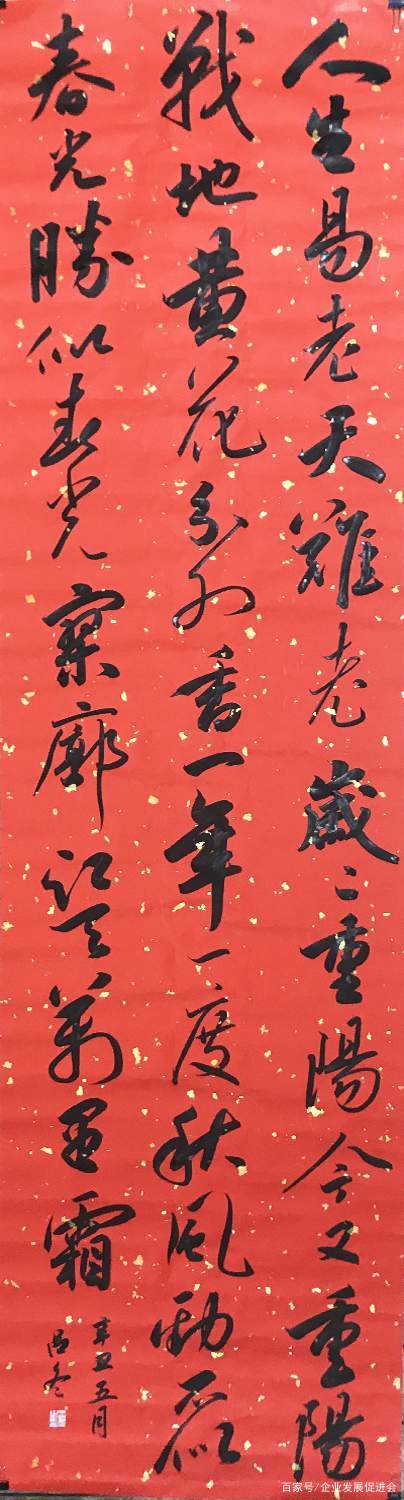 人生易老天難老歲々重陽今又重陽
戰地黃花分外香一年一度秋風勁不似
春光勝似春光寥廓江天萬里霜
辛丑五月
百家号/企业发展促进会